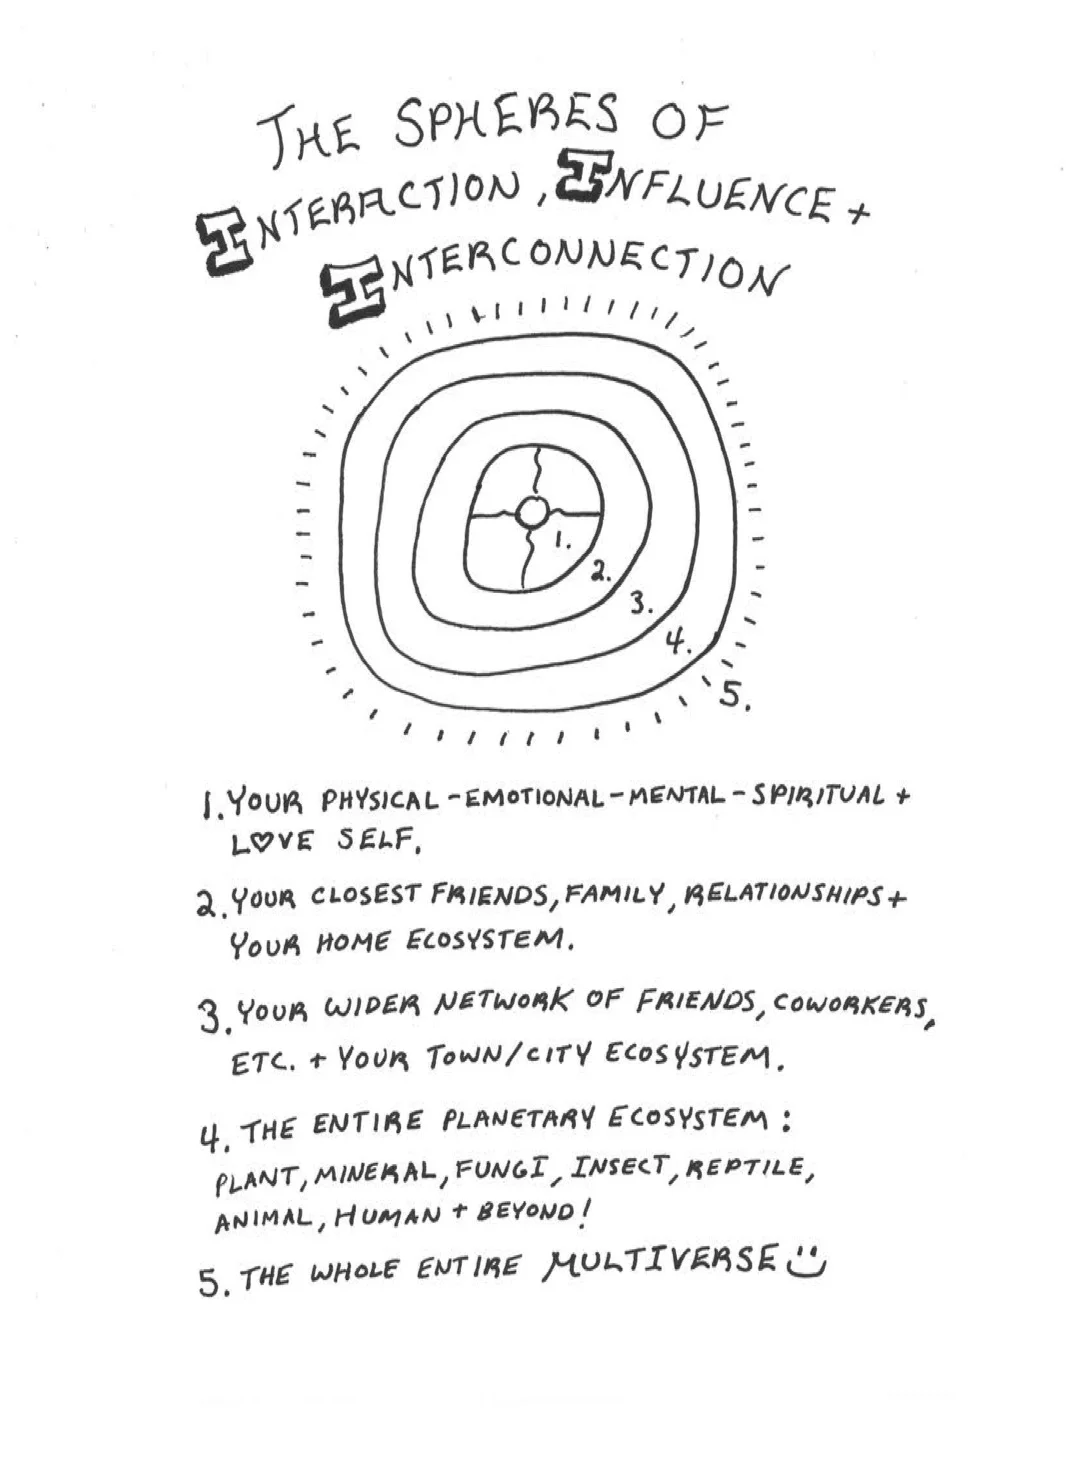 THE SPHERES OF
INTERACTION, INFLUENCE +
INTERCONNECTION
1.
2.
3.
4.
5.
1. YOUR PHYSICAL-EMOTIONAL-MENTAL-SPIRITUAL +
L♡VE SELF.
2. YOUR CLOSEST FRIENDS, FAMILY, RELATIONSHIPS +
YOUR HOME ECOSYSTEM.
3. YOUR WIDER NETWORK OF FRIENDS, COWORKERS,
ETC. + YOUR TOWN/CITY ECOSYSTEM.
4. THE ENTIRE PLANETARY ECOSYSTEM:
PLANT, MINERAL, FUNGI, INSECT, REPTILE,
ANIMAL, HUMAN + BEYOND!
5. THE WHOLE ENTIRE MULTIVERSE